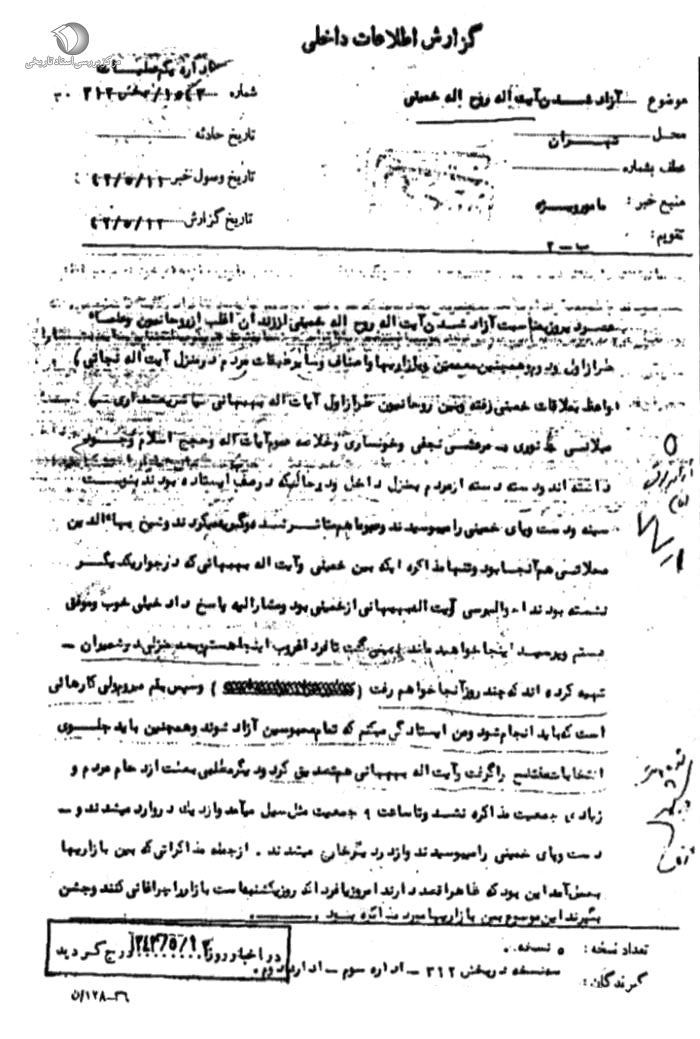 مرکز بررسی اسناد تاریخی
گزارش اطلاعات داخلی
اداره یکم عملیات
موضوع آزاد شدن آیت اله روح اله خمینی
شماره
محل تهران
تاریخ حادثه
عطف بشماره
تاریخ وصول خبر ۴۲/۵/۱۲
منبع خبر : مامور ویژه
تاریخ گزارش ۴۲/۵/۱۲
تقویم : ب - ۲
آزاد شدن آیت اله روح اله خمینی از زندان اغلب از روحانیون
طراز اول و دوم و همچنین معممین و بازاریها و اصناف و سایر طبقات مردم در منزل آیت اله نجاتی )
واعظ بملاقات خمینی رفته و بین روحانیون طراز اول آیات اله بهبهانی شریعتمداری
میلانی نوری - مرعشی نجفی و خونساری و خلاصه عموم آیات اله و حجج اسلام وجود
داشته اند و دسته دسته از مردم بمنزل داخل و در حالیکه در صف ایستاده بودند بنوبت
سینه و دست و پای خمینی را میبوسیدند و عموما هم متاثر شده و گریه میکردند و شیخ بهاءالدین
محلاتی هم آنجا بود و تنها مذاکره ایکه بین خمینی و آیت اله بهبهانی که در جوار یکدیگر
نشسته بودند احوالپرسی آیت اله بهبهانی از خمینی بود و مشارالیه پاسخ داد خیلی خوب و موفق
هستم و پرسید اینجا خواهید ماند خمینی گفت تا فردا غروب اینجا هستم و بعد منزلی در شمیران -
تهیه کرده اند که چند روز آنجا خواهم رفت ( ) و سپس بقم میروم ولی کارهائی
است که باید انجام شود و من ایستادگی میکنم که تمام محبوسین آزاد شوند و همچنین باید جلوی
انتخابات مفتضح را گرفت و آیت اله بهبهانی هم تصدیق کرد و دیگر مطلبی بعلت ازدحام مردم و
زیادی جمعیت مذاکره نشد و تا ساعت ۹ جمعیت مثل سیل میآمد و از یک در وارد میشدند و -
دست و پای خمینی را میبوسیدند و از در دیگر خارج میشدند . از جمله مذاکراتی که بین بازاریها
بعمل آمد این بود که ظاهرا قصد دارند امروز یا فردا که روز یکشنبه است بازار را چراغانی کنند و جشن
بگیرند این موضوع بین بازاریها مورد مذاکره بود .
تعداد نسخه : ۵ نسخه
گیرندگان : سه نسخه در بخش ۳۱۲ - اداره سوم - اداره دوم .
در اخبار روز ۱۳۴۲/۵/۱۲ درج گردید
۳۶-۱۲۸/ن